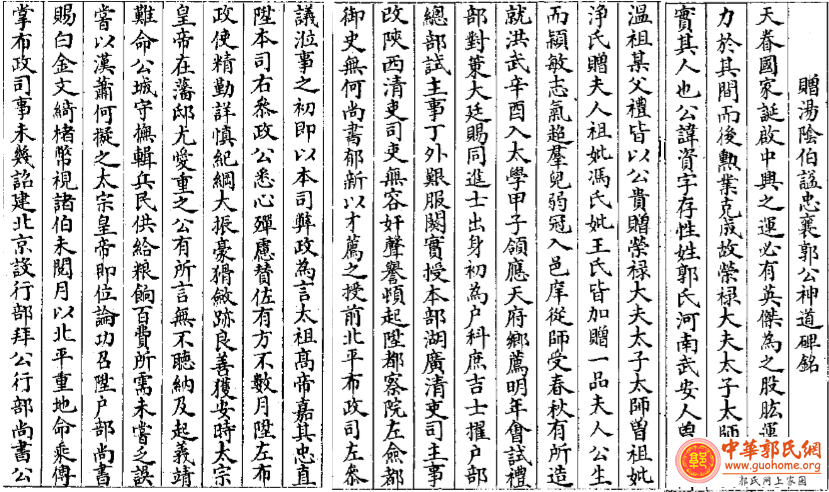 贈湯陰伯諡忠襄郭公神道碑銘
天眷國家誕啟中興之運必有英傑為之股肱運
力於其間而後勲業克成故榮禄大夫太子太師
實其人也公諱資字存性姓郭氏河南武安人曽
溫祖某父禮皆以公貴贈榮禄大夫太子太師曽祖妣
浄氏贈夫人祖妣馮氏妣王氏皆加贈一品夫人公生
而頴敏志氣超羣兒弱冠入邑庠從師受春秋有所造
就洪武辛酉入太學甲子領應天府鄉薦明年會試禮
部對䇿大廷賜同進士出身初為户科庶吉士擢户部
總部試主事丁外艱服闋實授本部湖廣清吏司主事
改陜西清吏司吏無容奸聲譽頓起陞都察院左僉都
御史無何尚書郁新以才薦之授前北平布政司左叅
議涖事之初即以本司弊政為言太祖髙帝嘉其忠直
陞本司右叅政公悉心殫慮替佐有方不數月陞左布
政使精勤詳慎紀綱大振豪猾斂跡良善獲安時太宗
皇帝在藩邸尤愛重之公有所言無不聽納及起義靖
難命公城守撫輯兵民供給粮餉百費所需未嘗乏誤
嘗以漢蕭何擬之太宗皇帝即位論功召陞户部尚書
賜白金文綺楮幣視諸伯未閱月以北平重地命乘傳
掌布政司事未幾詔建北京設行部拜公行部尚書公
中華郭氏網
www.guohome.org
郭氏网上家園